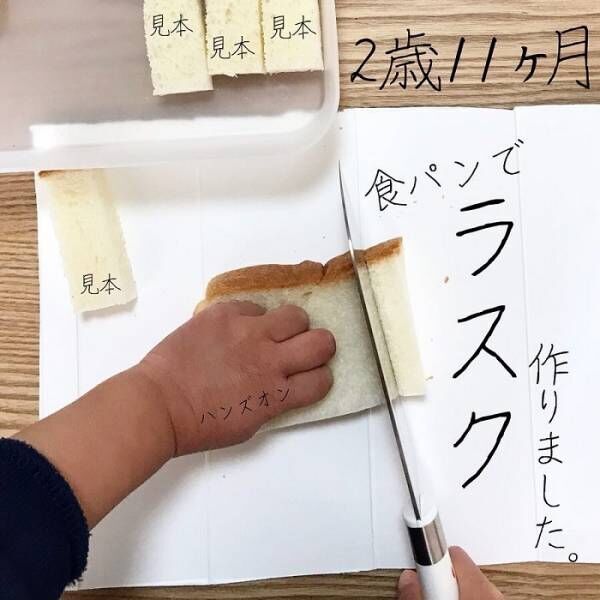 見本
見本
見本
2歳11ヶ月
食パンで
ラスク
作りました。
見本
ハンズオン